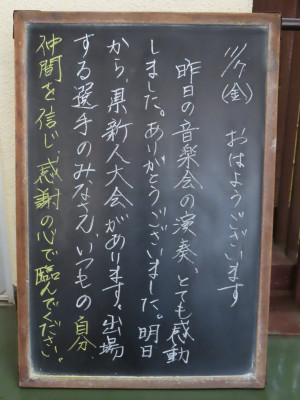 11/7(金) おはようございます
昨日の音楽会の演奏、とても感動
しました。ありがとうございました。明日
から、県新人大会があります。出場
する選手のみなさん、いつもの自分、
仲間を信じ、感謝の心で臨んでください。